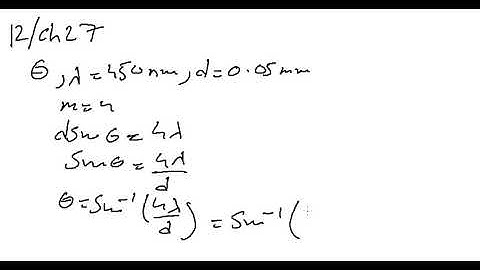 12/ch27
θ, λ=450nm, d=0.05mm
m=4
dsinθ=4λ
sinθ=4λ/d
θ=sin⁻¹(4λ/d)=sin⁻¹(